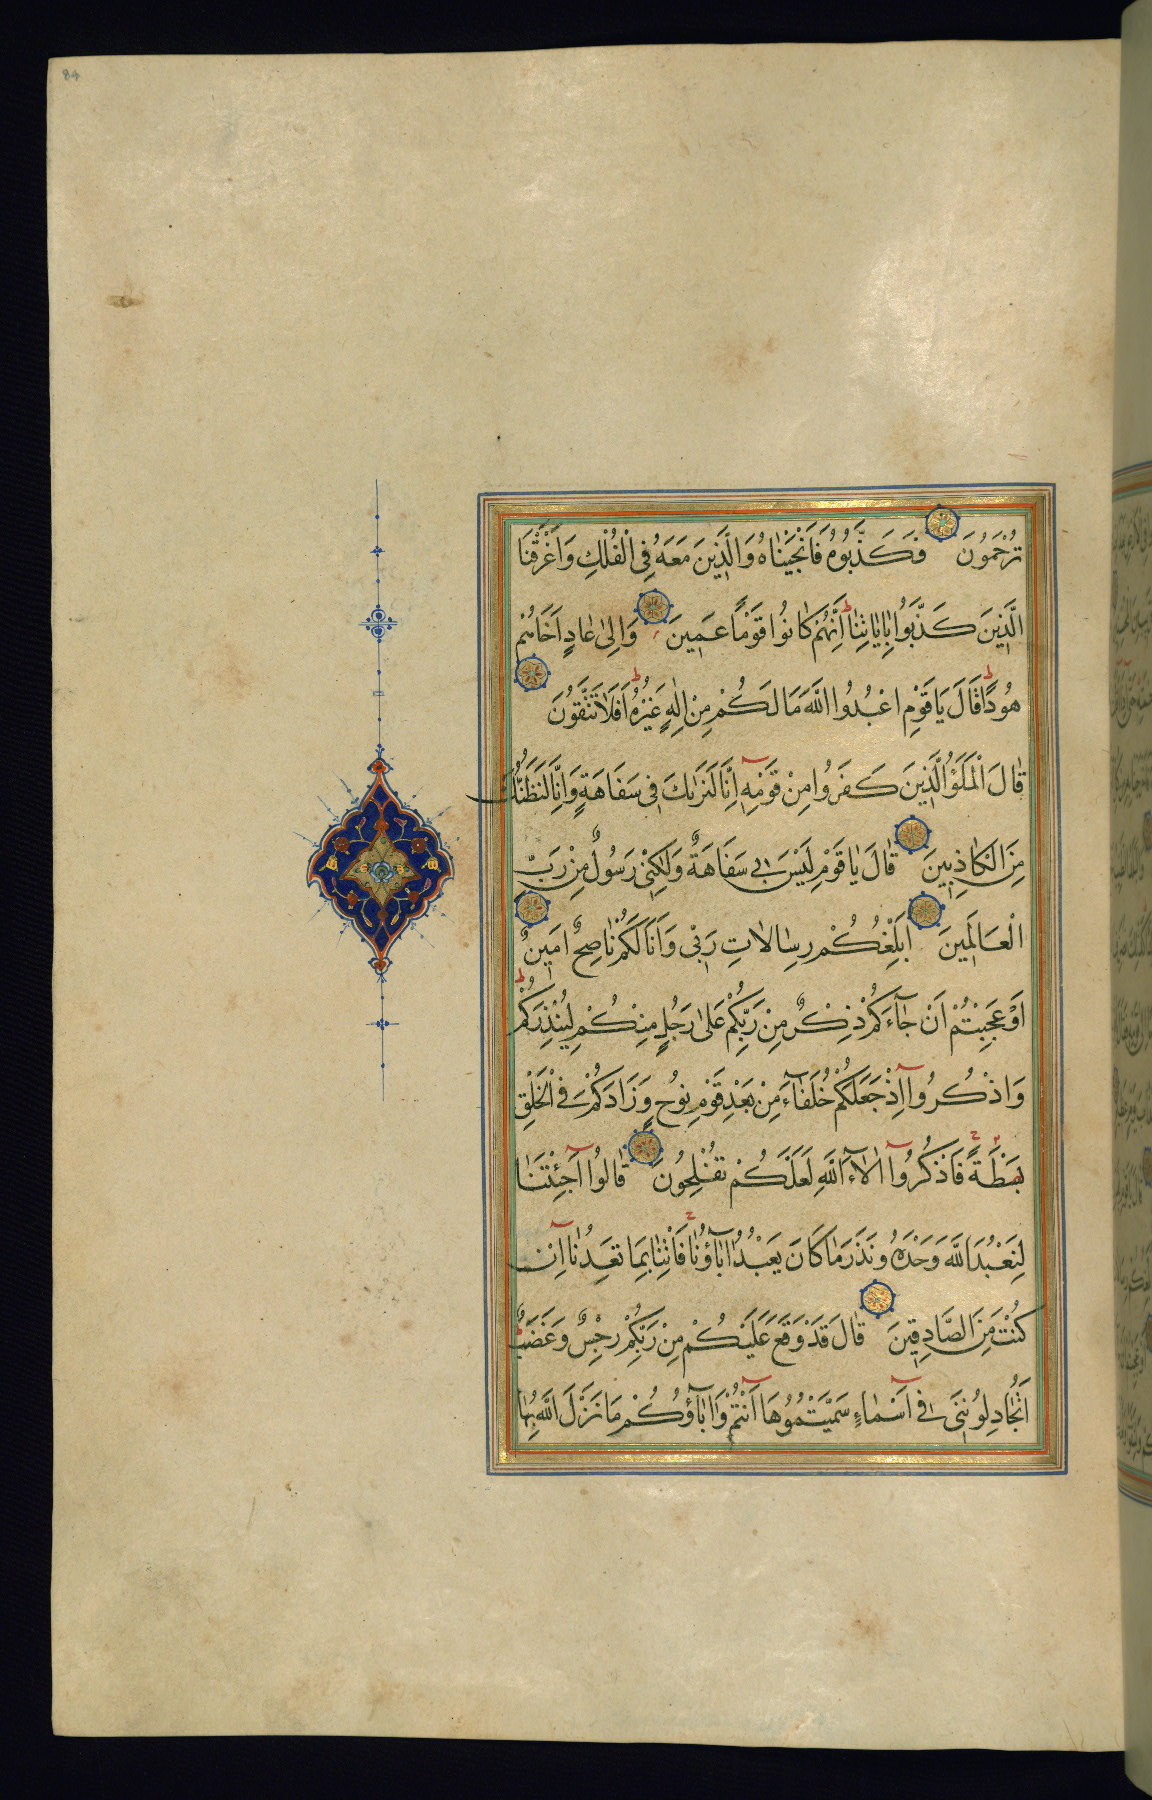 84
تُرْحَمُونَ فَكَذَّبُوهُ فَاَنْجَيْنَاهُ وَالَّذِينَ مَعَهُ فِى الْفُلْكِ وَاَغْرَقْنَا
الَّذِينَ كَذَّبُوا بِاٰيَاتِنَا اِنَّهُمْ كَانُوا قَوْمًا عَمِينَ وَاِلٰى عَادٍ اَخَاهُمْ
هُودًا قَالَ يَا قَوْمِ اعْبُدُوا اللّٰهَ مَا لَكُمْ مِنْ اِلٰهٍ غَيْرُهُ اَفَلَا تَتَّقُونَ
قَالَ الْمَلَؤُا الَّذِينَ كَفَرُوا مِنْ قَوْمِهٖ اِنَّا لَنَرٰيكَ فِى سَفَاهَةٍ وَاِنَّا لَنَظُنُّكَ
مِنَ الْكَاذِبِينَ قَالَ يَا قَوْمِ لَيْسَ بِى سَفَاهَةٌ وَلٰكِنِّى رَسُولٌ مِنْ رَبِّ
الْعَالَمِينَ اُبَلِّغُكُمْ رِسَالَاتِ رَبِّى وَاَنَا لَكُمْ نَاصِحٌ اَمِينٌ
اَوَعَجِبْتُمْ اَنْ جَآءَكُمْ ذِكْرٌ مِنْ رَبِّكُمْ عَلٰى رَجُلٍ مِنْكُمْ لِيُنْذِرَكُمْ
وَاذْكُرُوا اِذْ جَعَلَكُمْ خُلَفَآءَ مِنْ بَعْدِ قَوْمِ نُوحٍ وَزَادَكُمْ فِى الْخَلْقِ
بَصْطَةً فَاذْكُرُوا اٰلَآءَ اللّٰهِ لَعَلَّكُمْ تُفْلِحُونَ قَالُوا اَجِئْتَنَا
لِنَعْبُدَ اللّٰهَ وَحْدَهُ وَنَذَرَ مَا كَانَ يَعْبُدُ اٰبَآؤُنَا فَأْتِنَا بِمَا تَعِدُنَا اِنْ
كُنْتَ مِنَ الصَّادِقِينَ قَالَ قَدْ وَقَعَ عَلَيْكُمْ مِنْ رَبِّكُمْ رِجْسٌ وَغَضَبٌ
اَتُجَادِلُونَنِى فِى اَسْمَاءٍ سَمَّيْتُمُوهَا اَنْتُمْ وَاٰبَآؤُكُمْ مَا نَزَّلَ اللّٰهُ بِهَا